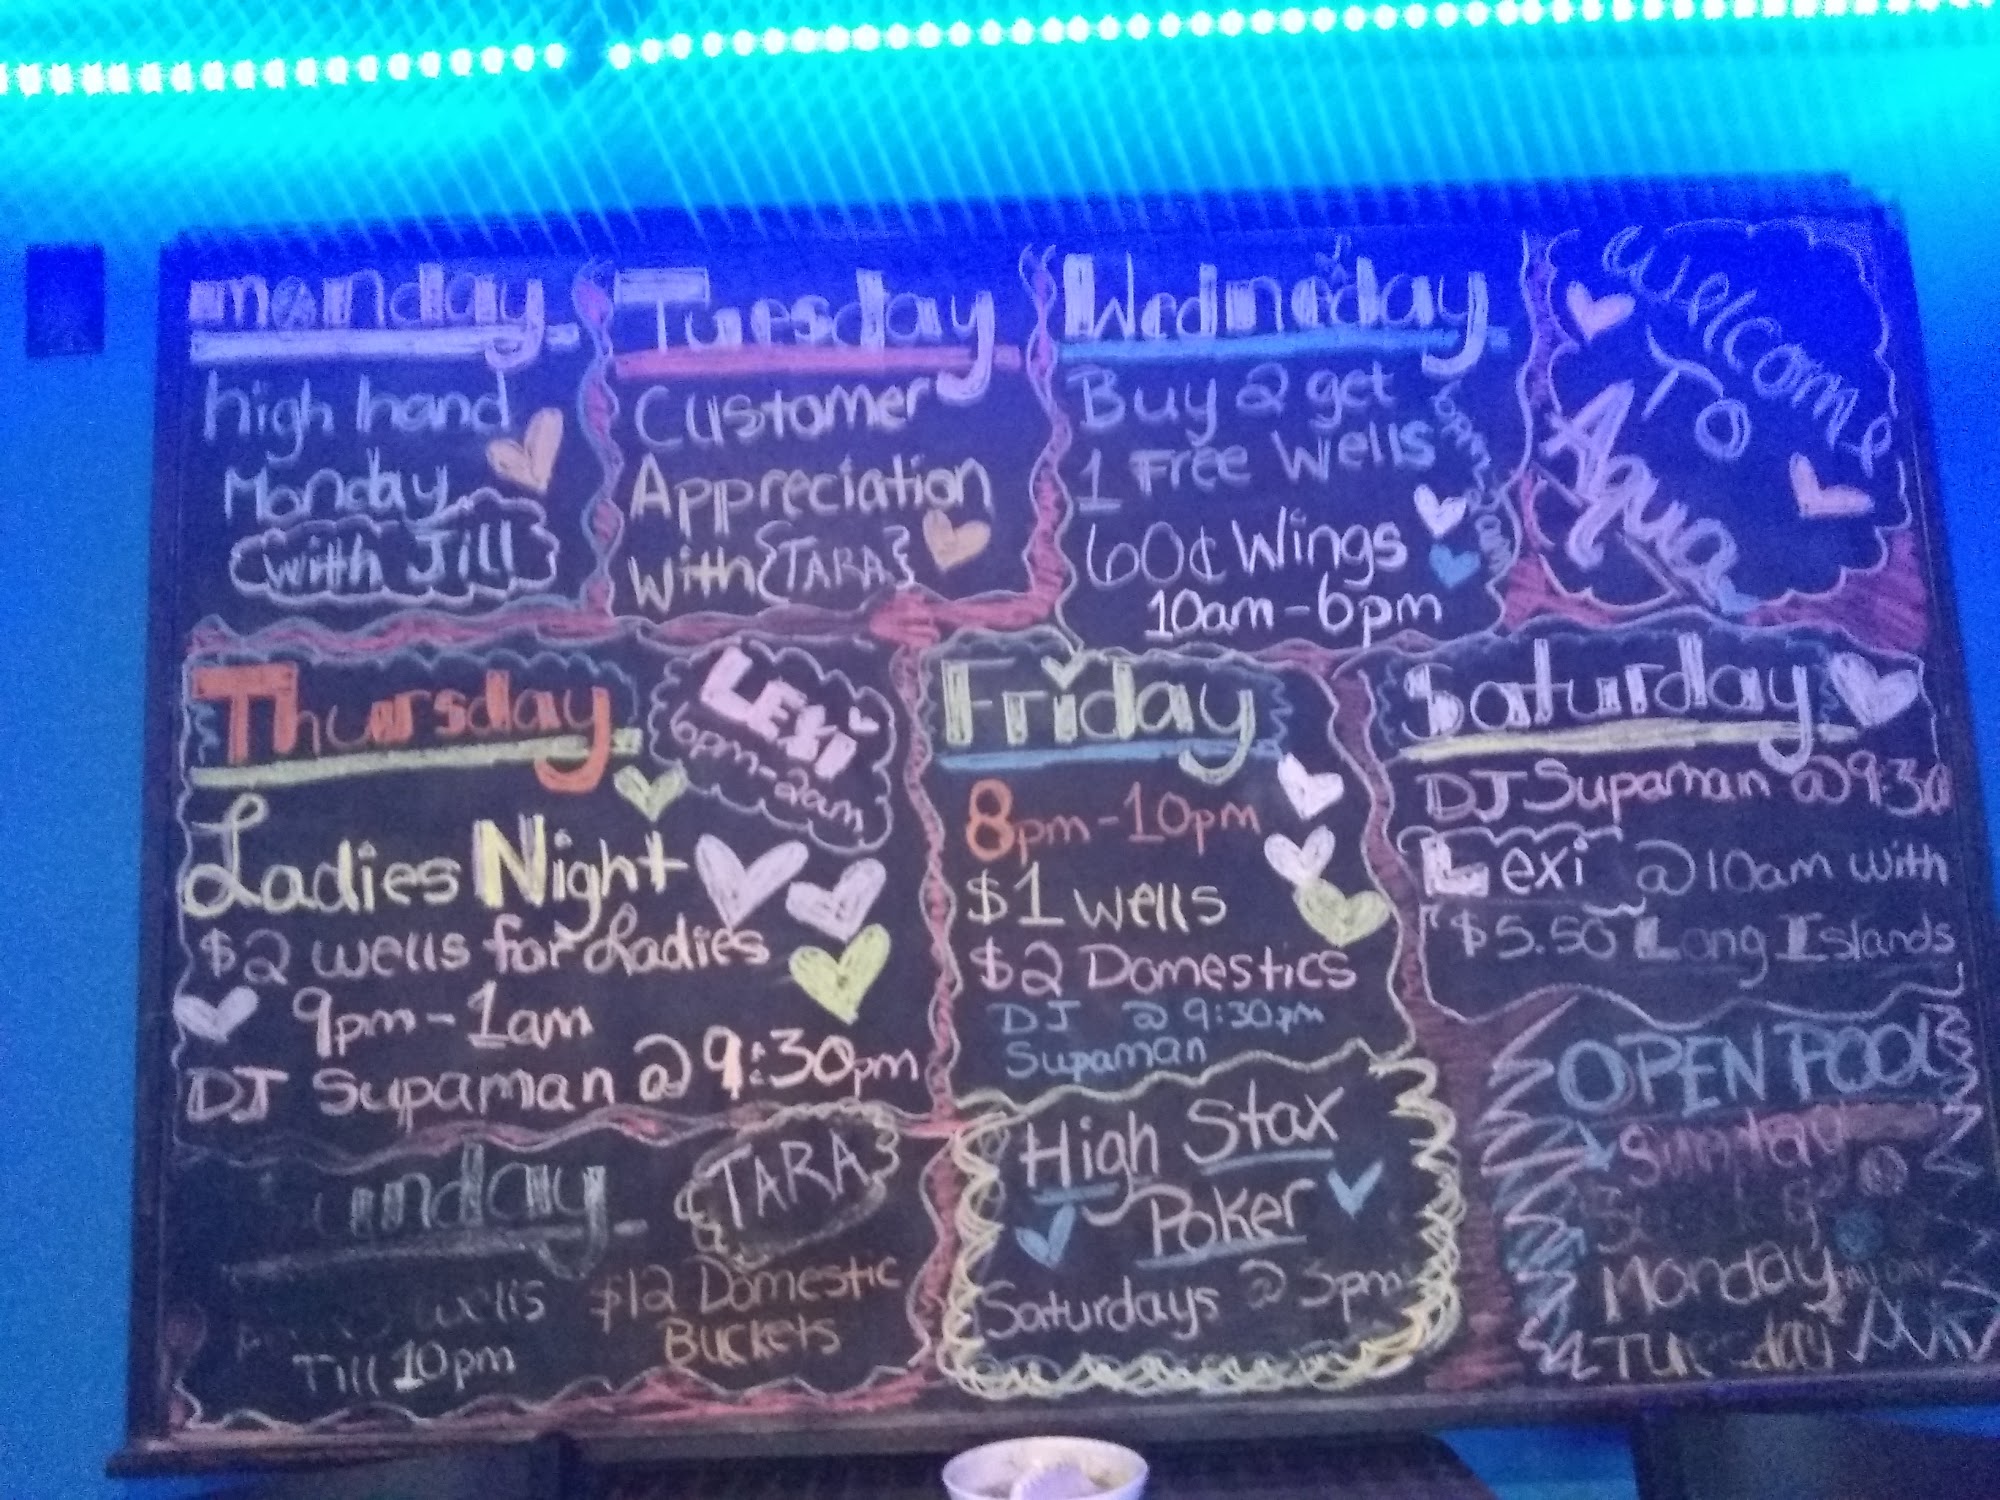 monday
high hand
Monday
with Jill
Tuesday
Customer
Appreciation
with {TARA}
Wedneday
Buy 2 get
1 Free Wells
60¢ Wings
10am-6pm
Welcome
To
Aqua
Thursday
Lexi
6pm-2am
Ladies Night
$2 wells for Ladies
9pm-1am
DJ Supaman @ 9:30pm
Friday
8pm-10pm
$1 wells
$2 Domestics
DJ @ 9:30pm
Supaman
Saturday
DJ Supaman @ 9:30
Lexi @ 10am with
$5.50 Long Islands
unday
wells
Till 10pm
TARA
$12 Domestic
Buckets
High Stax
Poker
Saturdays @ 3pm
OPEN POOL
Sunday
Monday
Tuesday